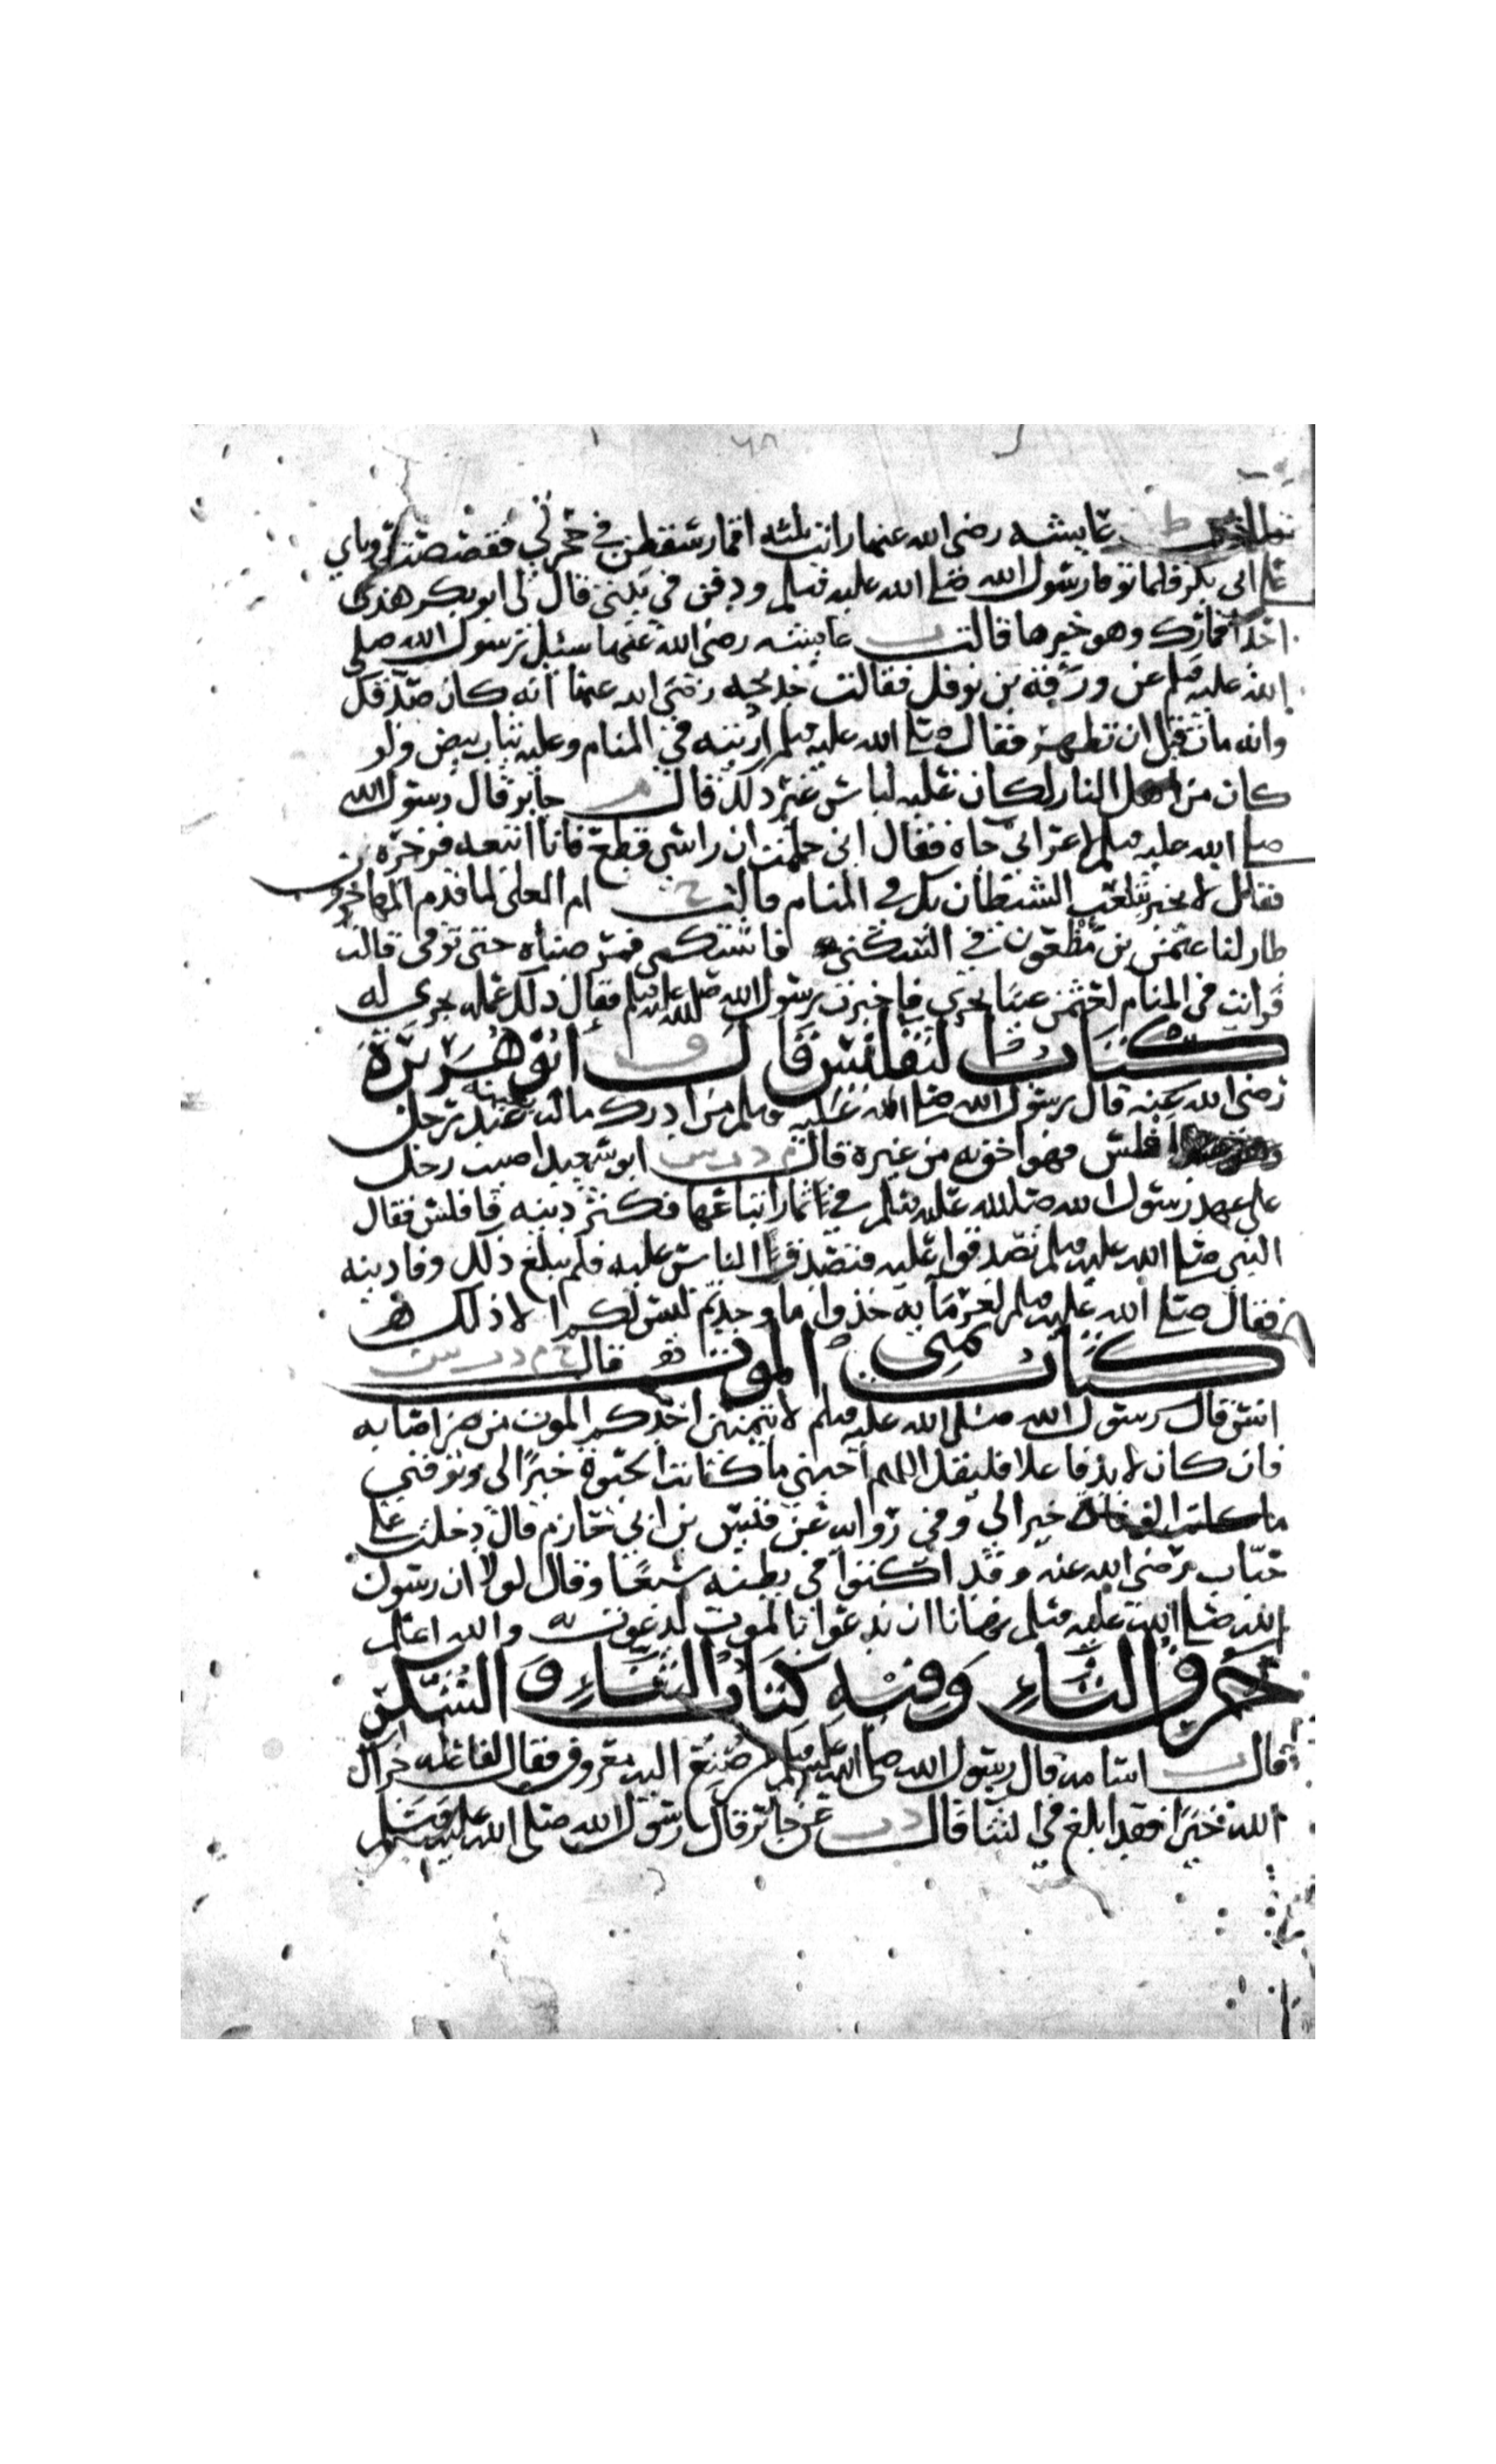 عايشه رضى الله عنها رايت ثلثه اقمار سقطن في حجرتي فقصصت روياي
على ابي بكر فلما توفا رسول الله صلى الله عليه وسلم ودفن في بيتي قال لي ابو بكر هذى
احد اقمارك وهو خيرها قالت عايشه رضى الله عنها سئل رسول الله صلى
الله عليه وسلم عن ورقة بن نوفل فقالت خديجه رضى الله عنها انه كان صدقك
وانه مات قبل ان تظهر فقال صلى الله عليه وسلم اريته في المنام وعليه ثياب بيض ولو
كان من اهل النار لكان عليه لباس غير ذلك قال م جابر قال رسول الله
صلى الله عليه وسلم لاعرابي جاه فقال اني حلمت ان راسي قطع فانا اتبعه فزجره
فقال لا تخبر بتلعب الشيطان بك في المنام قالت خ ام العلى لما قدم المهاجرون
طار لنا عثمن بن مظعون في السكنى فاشتكى فمرضناه حتى توفى قالت
فرايت في المنام لعثمن عينا تجري فاخبرت رسول الله صلى الله عليه وسلم فقال ذلك عمله يجرى له
كتاب التفليس قال ق ابو هريرة
رضى الله عنه قال رسول الله صلى الله عليه وسلم من ادرك ماله بعينه عند رجل
افلس فهو احق به من غيره قال م د ت س ابو سعيد اصيب رجل
على عهد رسول الله صلى الله عليه وسلم في ثمار ابتاعها فكثر دينه فافلس فقال
النبي صلى الله عليه وسلم تصدقوا عليه فتصدق الناس عليه فلم يبلغ ذلك وفا دينه
فقال صلى الله عليه وسلم لغرمآيه خذوا ما وجدتم ليس لكم الا ذلك
كتاب تمني الموت قال خ م د ت س
انس قال رسول الله صلى الله عليه وسلم لا يتمنين احدكم الموت من ضر اصابه
فان كان لا بد فاعلا فليقل اللهم احيني ما كانت الحيوة خيرا لي وتوفني
ما كانت الوفاة خيرا لي وفي رواية عن قيس بن ابي حازم قال دخلت على
خباب رضى الله عنه وقد اكتوا في بطنه سبعا وقال لولا ان رسول
الله صلى الله عليه وسلم نهانا ان ندعوا بالموت لدعوت به والله اعلم
حرف الثاء وفيه كتاب الثناء والشكر
قال ت اسامه قال رسول الله صلى الله عليه وسلم من صنع اليه معروف فقال لفاعله جزاك
الله خيرا فقد ابلغ في الثنا قال د ت عن جابر قال رسول الله صلى الله عليه وسلم